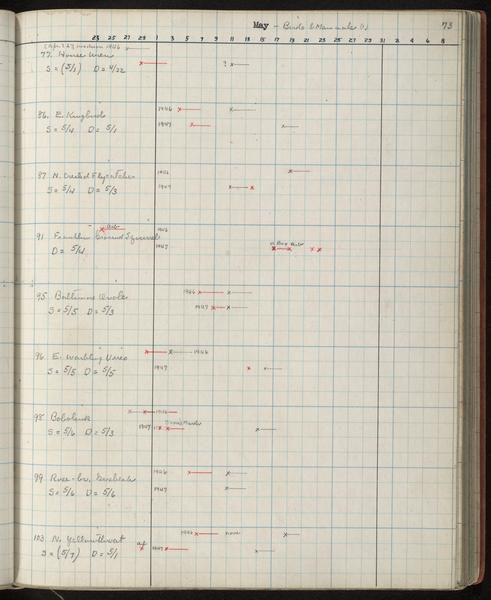 May - Birds & Mammals
73
23 25 27 29 1 3 5 7 9 11 13 15 17 19 21 23 25 27 29 31 2 4 6 8
77. House Wren
S = (5/1) D = 4/22
?
86. E. Kingbird
1946
S = 5/4 D = 5/1
1947
87. N. Crested Flycatcher
1946
S = 5/4 D = 5/3
1947
91 Franklin Ground Squirrel
1946
D = 5/4
1947
95 Baltimore Oriole
1946
S = 5/5 D = 5/3
1947
96 E. Warbling Vireo
1946
S = 5/5 D = 5/5
1947
98 Bobolink
1946
S = 5/6 D = 5/3
1947
99 Rose-br. Grosbeak
1946
S = 5/6 D = 5/6
1947
103 N. Yellowthroat
1946
none
S = (5/7) D = 5/1
1947